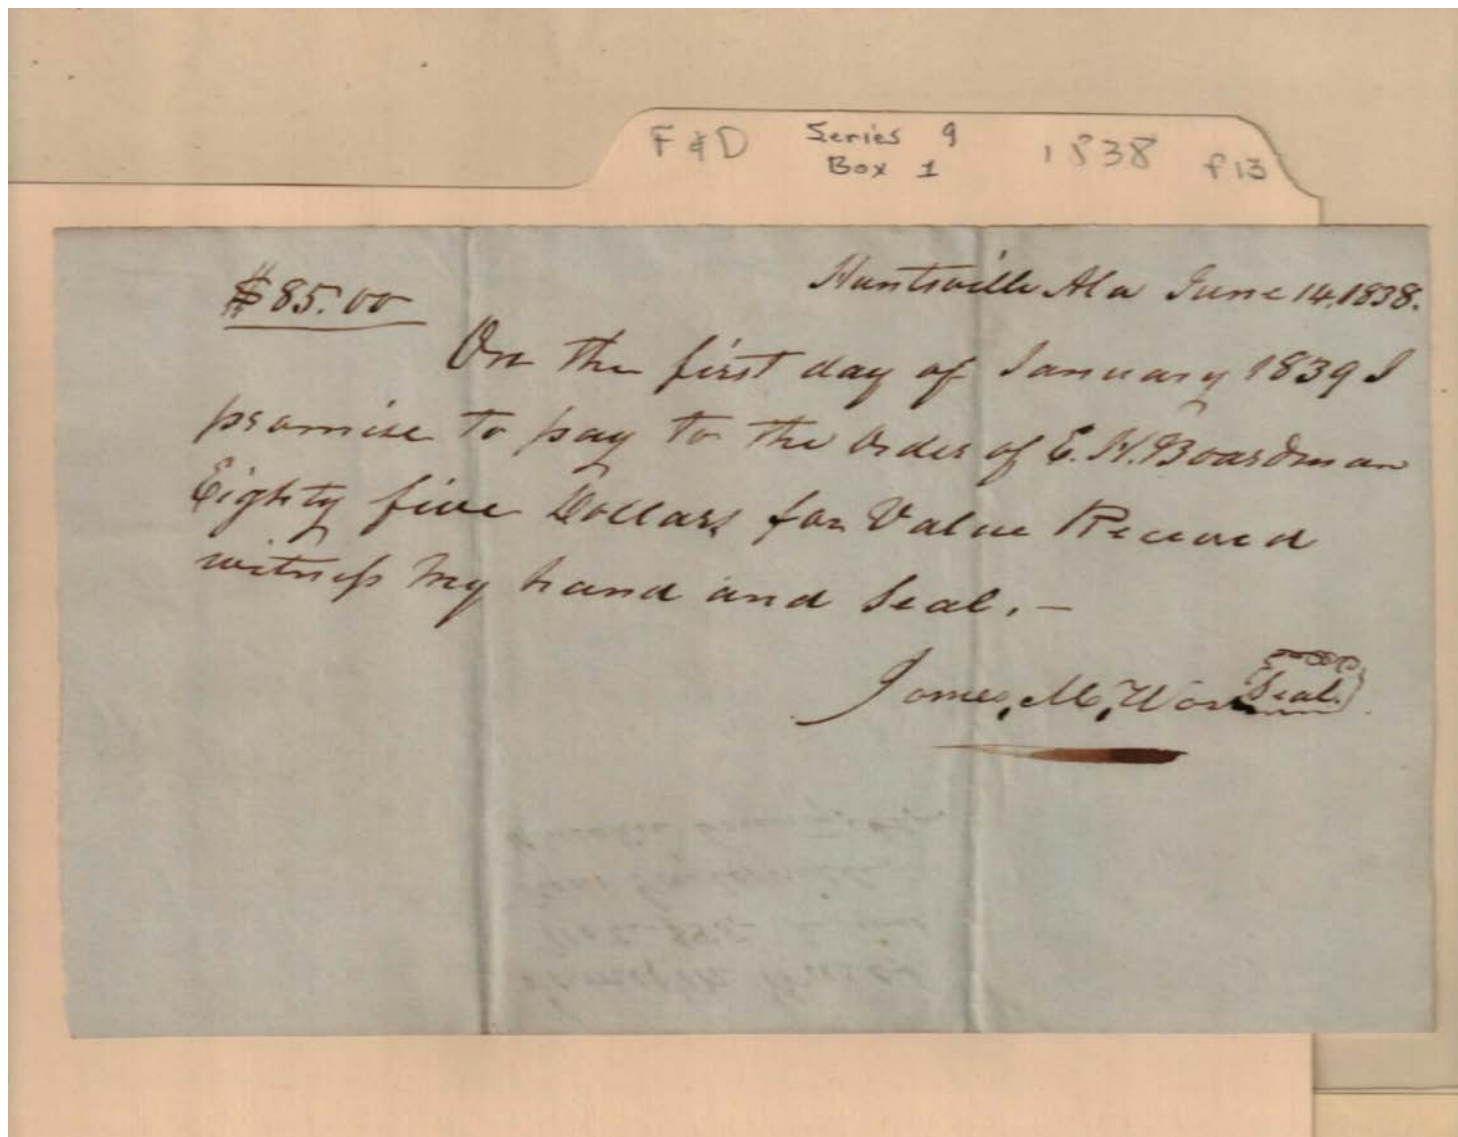 F & D Series 9 1838 f13
Box 1
Huntsville Ala June 14, 1838.
$85.00
On the first day of January 1839 I
promise to pay to the order of E. H. Boardman
Eighty five Dollars for Value Received
witness my hand and Seal. —
James. M.
Seal.